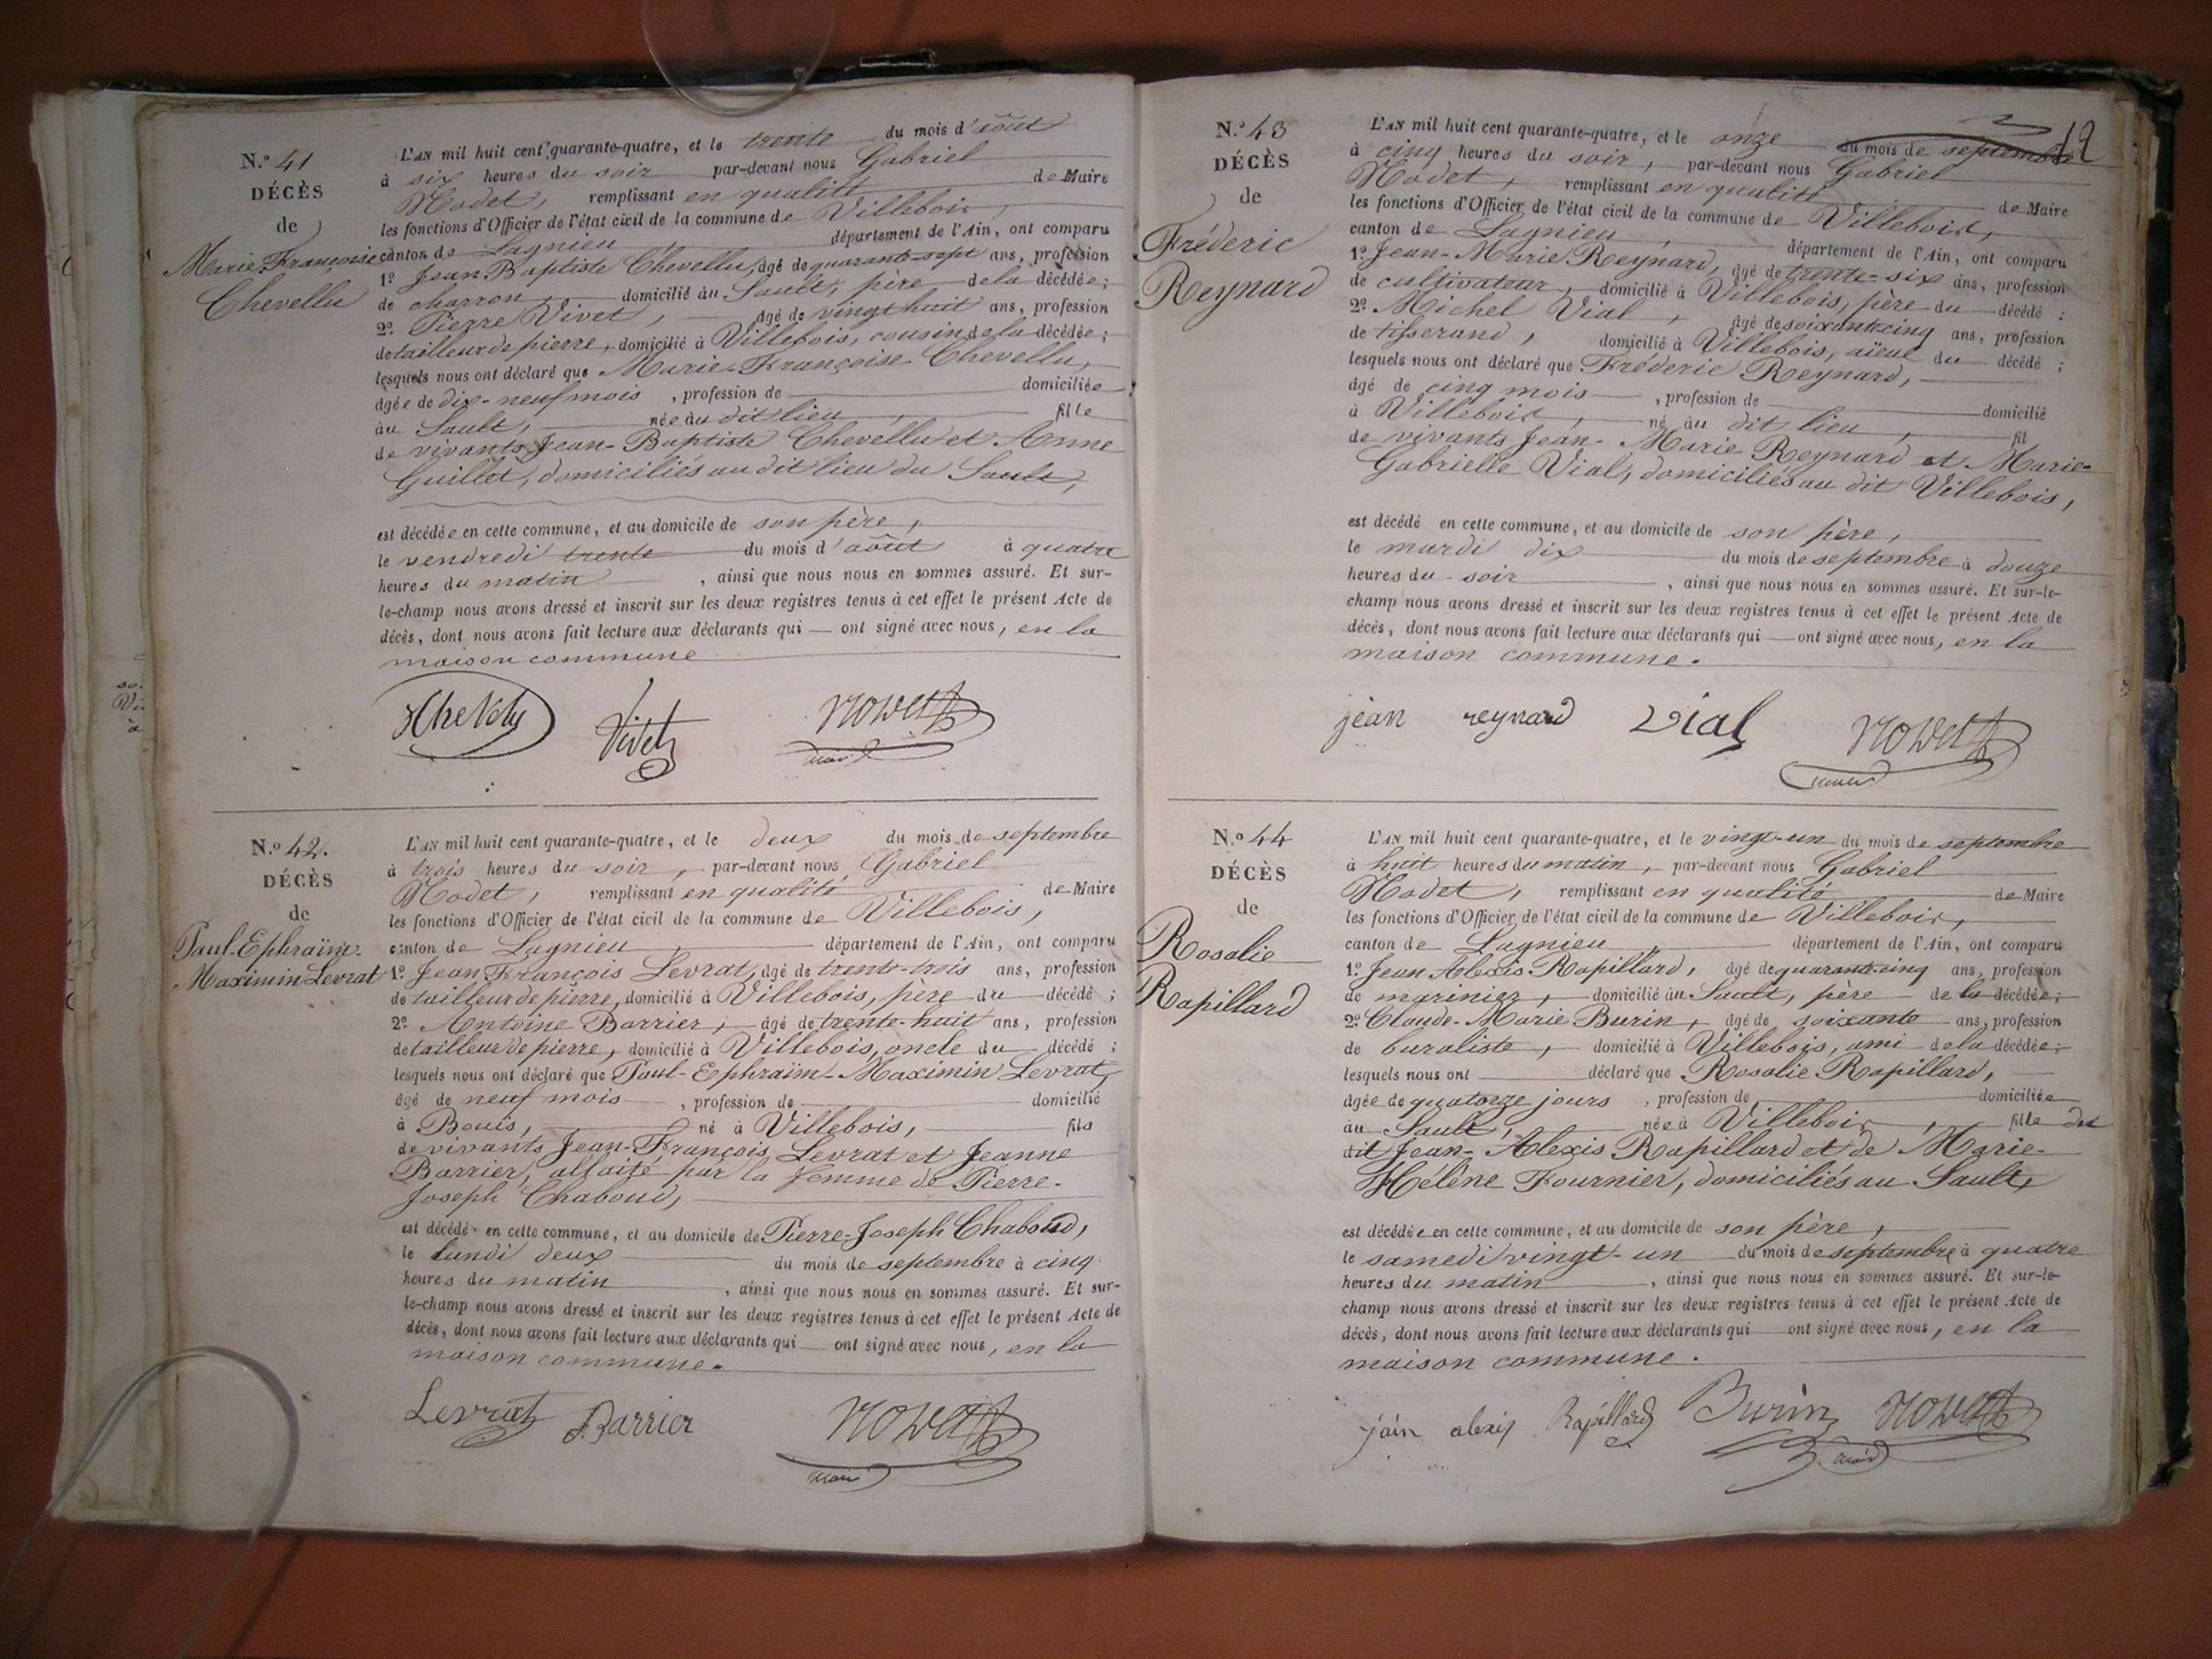 N.º 41
DÉCÈS
de
Marie Françoise
Chevellu
L'AN mil huit cent quarante-quatre, et le trente du mois d'août
à six heures du soir par-devant nous Gabriel
Nodet, remplissant en qualité de Maire
les fonctions d'Officier de l'état civil de la commune de Villebois,
canton de Lagnieu, département de l'Ain, ont comparu
1º Jean Baptiste Chevellu, âgé de quarante-sept ans, profession
de charron, domicilié au Sault, père de la décédée;
2º Pierre Vivet, âgé de vingt huit ans, profession
de tailleur de pierre, domicilié à Villebois, cousin de la décédée;
lesquels nous ont déclaré que Marie-Françoise Chevellu,
âgée de dix-neuf mois, profession de domiciliée
au Sault, née au dit lieu, fille
de vivants Jean-Baptiste Chevellu et Anne
Guillet, domiciliés au dit lieu du Sault,
est décédée en cette commune, et au domicile de son père,
le vendredi trente du mois d'août à quatre
heures du matin, ainsi que nous nous en sommes assuré. Et sur-
le-champ nous avons dressé et inscrit sur les deux registres tenus à cet effet le présent Acte de
décès, dont nous avons fait lecture aux déclarants qui — ont signé avec nous, en la
maison commune
Vivet
maire
N.º 42.
DÉCÈS
de
Paul-Ephraïm-
Maximin Levrat
L'AN mil huit cent quarante-quatre, et le deux du mois de septembre
à trois heures du soir, par-devant nous Gabriel
Nodet, remplissant en qualité de Maire
les fonctions d'Officier de l'état civil de la commune de Villebois,
canton de Lagnieu, département de l'Ain, ont comparu
1º Jean François Levrat, âgé de trente-trois ans, profession
de tailleur de pierre, domicilié à Villebois, père du décédé;
2º Antoine Barrier, âgé de trente-huit ans, profession
de tailleur de pierre, domicilié à Villebois, oncle du décédé;
lesquels nous ont déclaré que Paul-Ephraïm-Maximin Levrat,
âgé de neuf mois, profession de domicilié
à Bouis, né à Villebois, fils
de vivants Jean-François Levrat et Jeanne
Barrier, allaité par la femme de Pierre-
Joseph Chaboud,
est décédé en cette commune, et au domicile de Pierre-Joseph Chaboud,
le lundi deux du mois de septembre à cinq
heures du matin, ainsi que nous nous en sommes assuré. Et sur-
le-champ nous avons dressé et inscrit sur les deux registres tenus à cet effet le présent Acte de
décès, dont nous avons fait lecture aux déclarants qui ont signé avec nous, en la
maison commune.
Levrat Barrier
maire
12
N.º 43
DÉCÈS
de
Fréderic
Reynard
L'AN mil huit cent quarante-quatre, et le onze du mois de septembre
à cinq heures du soir, par-devant nous Gabriel
Nodet, remplissant en qualité de Maire
les fonctions d'Officier de l'état civil de la commune de Villebois,
canton de Lagnieu, département de l'Ain, ont comparu
1º Jean-Marie Reynard, âgé de trente-six ans, profession
de cultivateur, domicilié à Villebois, père du décédé;
2º Michel Vial, âgé de soixante cinq ans, profession
de tisserand, domicilié à Villebois, aïeul du décédé;
lesquels nous ont déclaré que Fréderic Reynard,
âgé de cinq mois, profession de domicilié
à Villebois, né au dit lieu, fil
de vivants Jean-Marie Reynard et Marie-
Gabrielle Vial, domiciliés au dit Villebois,
est décédé en cette commune, et au domicile de son père,
le mardi dix du mois de septembre à douze
heures du soir, ainsi que nous nous en sommes assuré. Et sur-le-
champ nous avons dressé et inscrit sur les deux registres tenus à cet effet le présent Acte de
décès, dont nous avons fait lecture aux déclarants qui — ont signé avec nous, en la
maison commune.
jean reynard Vial
N.º 44
DÉCÈS
de
Rosalie
Rapillard
L'AN mil huit cent quarante-quatre, et le vingt-un du mois de septembre
à huit heures du matin, par-devant nous Gabriel
Nodet, remplissant en qualité de Maire
les fonctions d'Officier de l'état civil de la commune de Villebois,
canton de Lagnieu, département de l'Ain, ont comparu
1º Jean Alexis Rapillard, âgé de quarante cinq ans, profession
de marinier, domicilié au Sault, père de la décédée;
2º Claude-Marie Burin, âgé de soixante ans, profession
de buraliste, domicilié à Villebois, ami de la décédée;
lesquels nous ont déclaré que Rosalie Rapillard,
âgée de quatorze jours, profession de domiciliée
au Sault, née à Villebois, fille du
dit Jean-Alexis Rapillard et de Marie-
Hélène Fournier, domiciliés au Sault,
est décédée en cette commune, et au domicile de son père,
le samedi vingt-un du mois de septembre à quatre
heures du matin, ainsi que nous nous en sommes assuré. Et sur-le-
champ nous avons dressé et inscrit sur les deux registres tenus à cet effet le présent Acte de
décès, dont nous avons fait lecture aux déclarants qui ont signé avec nous, en la
maison commune.
jain alexis Rapillard Burin